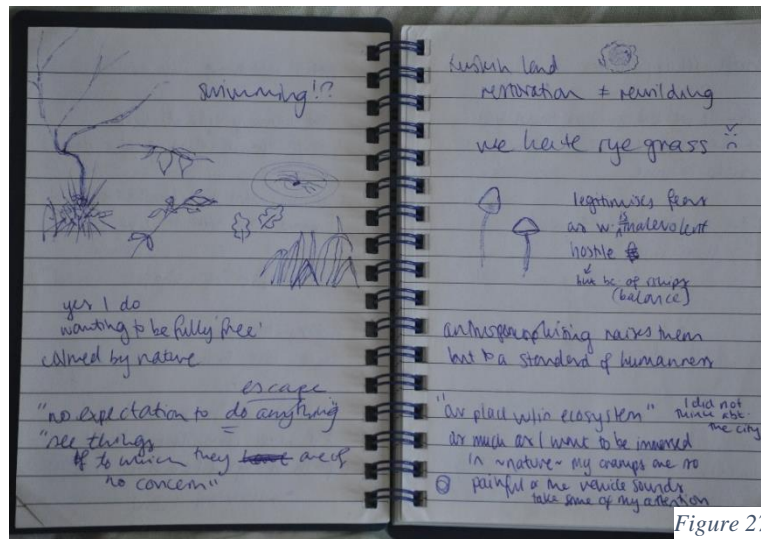 swimming!?
yes I do
wanting to be fully 'free'
calmed by nature
escape
"no expectation to do anything"
"see things
to which they have are of
no concern"
land
restoration ≠ rewilding
we hate rye grass
legitimises fears
as w. is malevolent
hostile
but bc of
(balance)
anthropomorphising raises them
but to a standard of humanness
"our place w/in ecosystem"
I did not
think abt.
the city
as much as I want to be immersed
in ~nature~ my cramps are so
painful & the vehicle sounds
take some of my attention
Figure 27